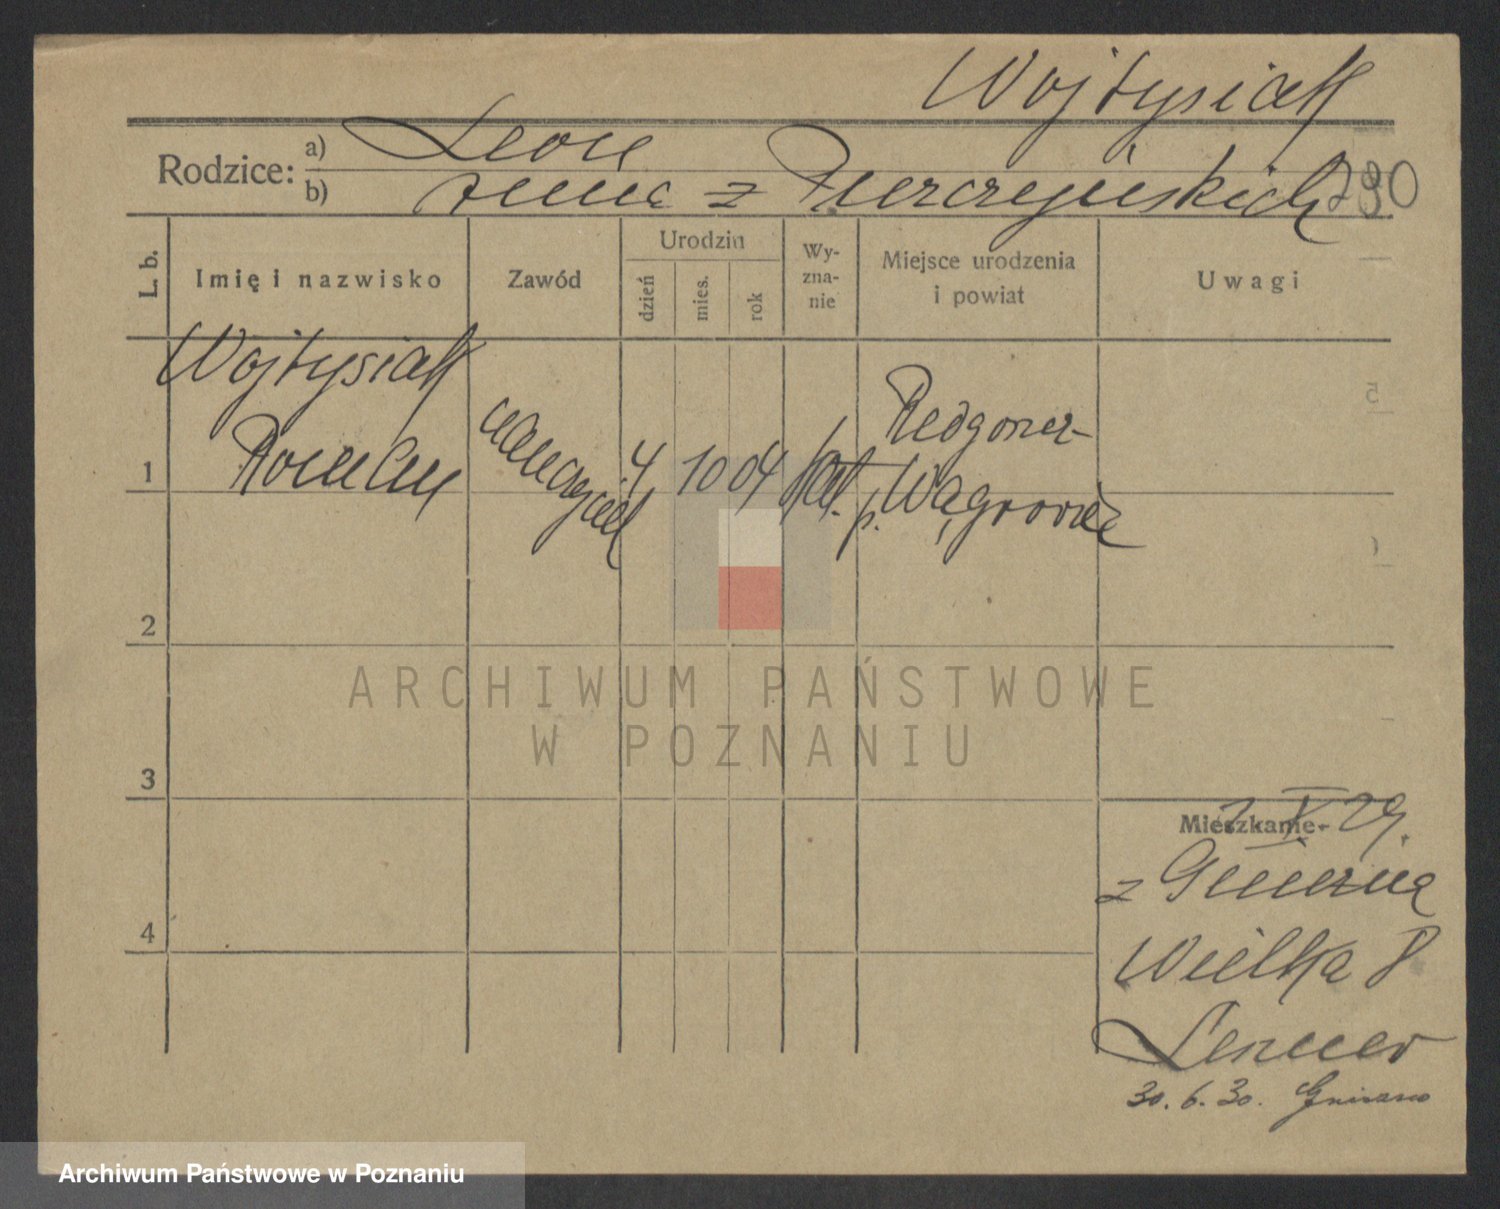 Wojtysiak
Rodzice: a) Leon
b) Anna z
L. b. Imię i nazwisko Zawód Urodzin dzień mies. rok Wy-zna-nie Miejsce urodzenia i powiat Uwagi
Wojtysiak
1 Roman nauczyciel 4 10 04 kat.
p. Wągrowiec
2
3
4
ARCHIWUM PAŃSTWOWE
W POZNANIU
Mieszkanie
V 29.
z Gniezna
Wielka 8
30. 6. 30. Gniezno
Archiwum Państwowe w Poznaniu